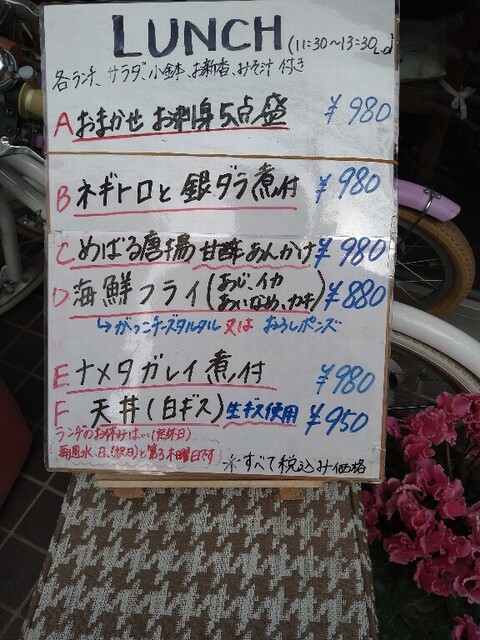 LUNCH (11:30~13:30L.O)
各ランチ、サラダ、小鉢、お新香、みそ汁 付き
A おまかせ お刺身5点盛 ¥980
B ネギトロと銀ダラ煮付 ¥980
C めばる唐揚 甘酢あんかけ ¥980
D 海鮮フライ(あじ、イカ あいなめ、カキ) ¥880
↳がっこチーズタルタル 又は おろしポンズ
E ナメタガレイ煮付 ¥980
F 天丼(白ギス)生ギス使用 ¥950
ランチのお休みは…(定休日)
毎週水、日、(祝日)と第3木曜日です
※すべて税込み価格